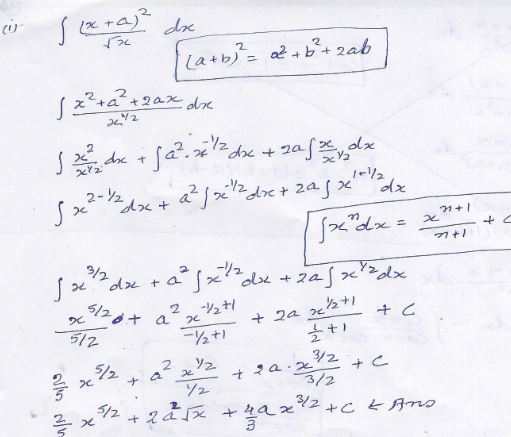 (i) ∫ (x+a)²/√x dx
(a+b)² = a²+b²+2ab
∫ x²+a²+2ax/x^1/2 dx
∫ x²/x^1/2 dx + ∫a².x^-1/2 dx + 2a∫ x/x^1/2 dx
∫ x^2-1/2 dx + a²∫x^-1/2 dx + 2a∫ x^1-1/2 dx
∫x^n dx = x^n+1/n+1 + c
∫ x^3/2 dx + a²∫x^-1/2 dx + 2a∫x^1/2 dx
x^5/2/5/2 + a² x^-1/2+1/-1/2+1 + 2a x^1/2+1/1/2+1 + C
2/5 x^5/2 + a² x^1/2/1/2 + 2a.x^3/2/3/2 + C
2/5 x^5/2 + 2a²√x + 4/3 a x^3/2 + C ← Ans